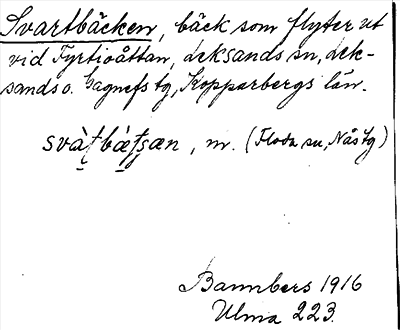 Svartbäcken, bäck som flyter ut
vid Fyrtioåttan, Leksands sn, Lek-
sands o. Gagnefs tg, Kopparbergs län.
svàʈbæ̀ʈʂæn, m. (Floda sn, Nås tg)
Bannbers 1916
Ulma 223.